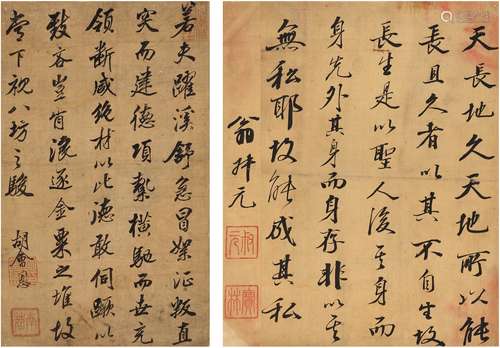 天長地久天地所以能
長且久者以其不自生故
長生是以聖人後其身而
身先外其身而身存非以其
無私耶故能成其私
翁叔元
若夫躍溪舒急冒絮征叛直
突而建德項縶橫馳而世充
領斷咸絶材以比德敢伺蹶以
致吝豈肯浪逐金粟之堆故
當下視八坊之駿
胡會恩